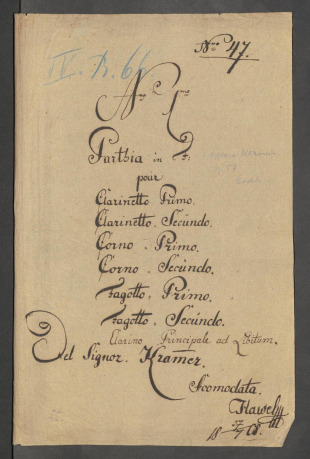 Nro 47.
IV. B. 66
Nro 1mo
Parthia in
pour
Clarinetto Primo.
Clarinetto Secundo.
Corno. Primo.
Corno. Secundo.
Fagotto. Primo.
Fagotto. Secundo.
Clarino Principale ad Libitum.
Del Signor. Kramer.
Acomodata.
Havel